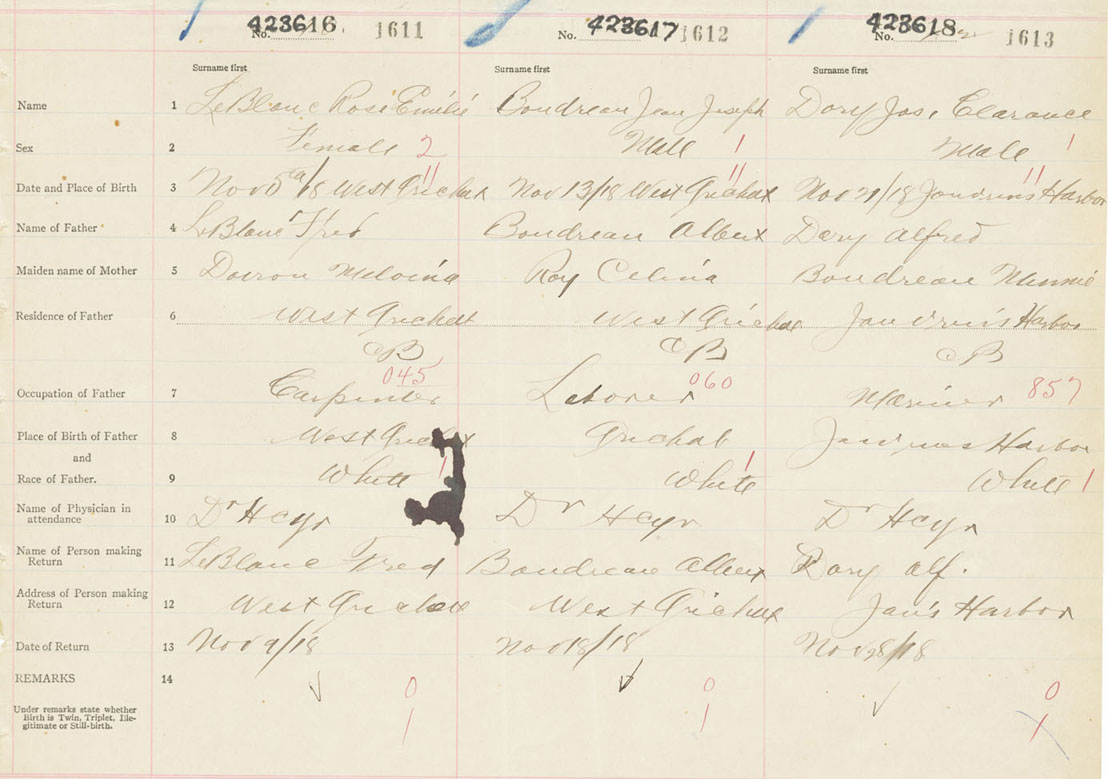 423616 423617 423618
No. 1611 No. 1612 No. 1613
Surname first Surname first Surname first
Name 1 LeBlanc Rose Emilie Boudreau Jean Joseph Dory Jos. Clarance
Sex 2 Female 2 Male 1 Male 1
11 11 11
Date and Place of Birth 3 Nov /18 West Arichat Nov 13/18 West Arichat Nov 21/18 Janvrins Harbor
Name of Father 4 LeBlanc Fred Boudreau Albert Dory Alfred
Maiden name of Mother 5 Doiron Melvina Roy Celina Boudreau Minnie
Residence of Father 6 West Arichat West Arichat Janvrins Harbor
CB CB CB
045 060 857
Occupation of Father 7 Carpenter Laborer Mariner
Place of Birth of Father 8 West Arichat Arichat Janvrins Harbor
and
Race of Father. 9 White 1 White 1 White 1
Name of Physician in
attendance 10 Dr Dr Dr
Name of Person making
Return 11 LeBlanc Fred Boudreau Albert Dory Alf.
Address of Person making
Return 12 West Arichat West Arichat Jan's Harbor
Date of Return 13 Nov 9/18 Nov 18/18 Nov 28/18
REMARKS 14
0 0 0
Under remarks state whether
Birth is Twin, Triplet, Ille-
gitimate or Still-birth.
1 1 1